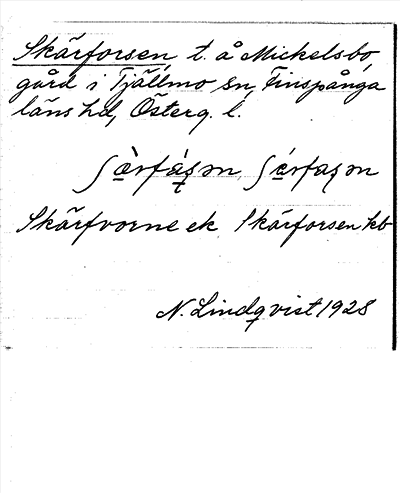 Skärforsen t. å Mickelsbo
gård i Tjällmo sn, Finspånga
läns hd, Österg. l.
Skärfvorne ek Skárforsen kb
N. Lindqvist 1928